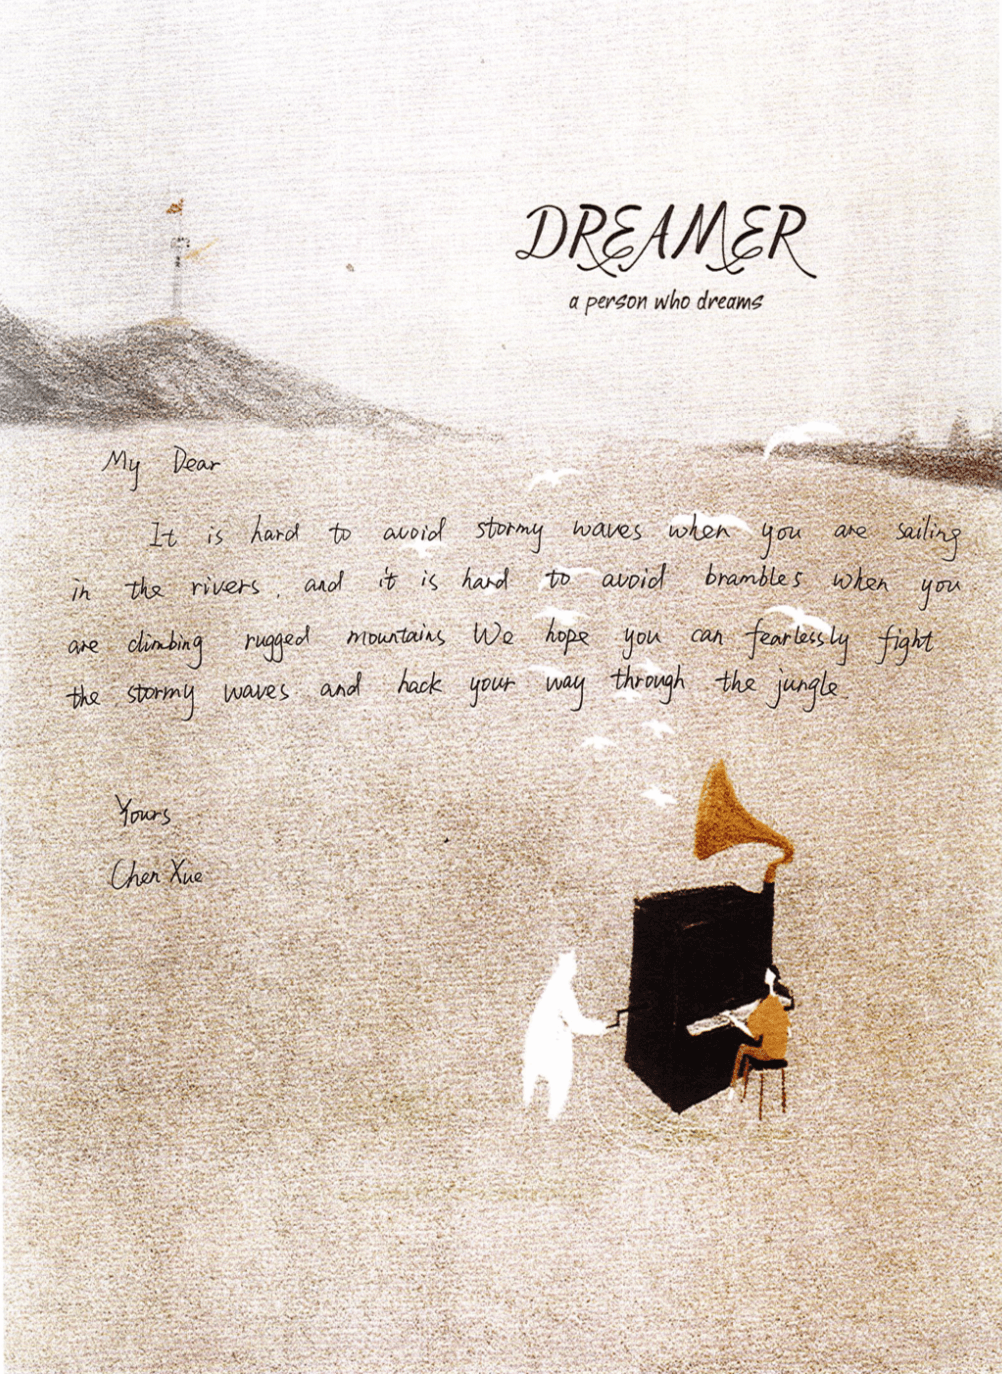 DREAMER
a person who dreams
My Dear
It is hard to avoid stormy waves when you are sailing
in the rivers, and it is hard to avoid brambles when you
are climbing rugged mountains We hope you can fearlessly fight
the stormy waves and hack your way through the jungle.
Yours
Chen Xue